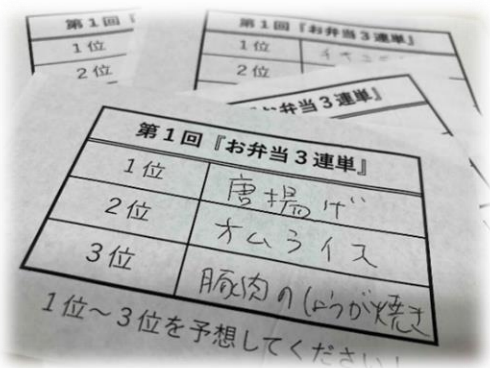 第1回『お弁当3連単』
1位
2位
第1回『お弁当3連単』
1位 唐揚げ
2位 オムライス
3位 豚肉のしょうが焼き
1位～3位を予想してください!